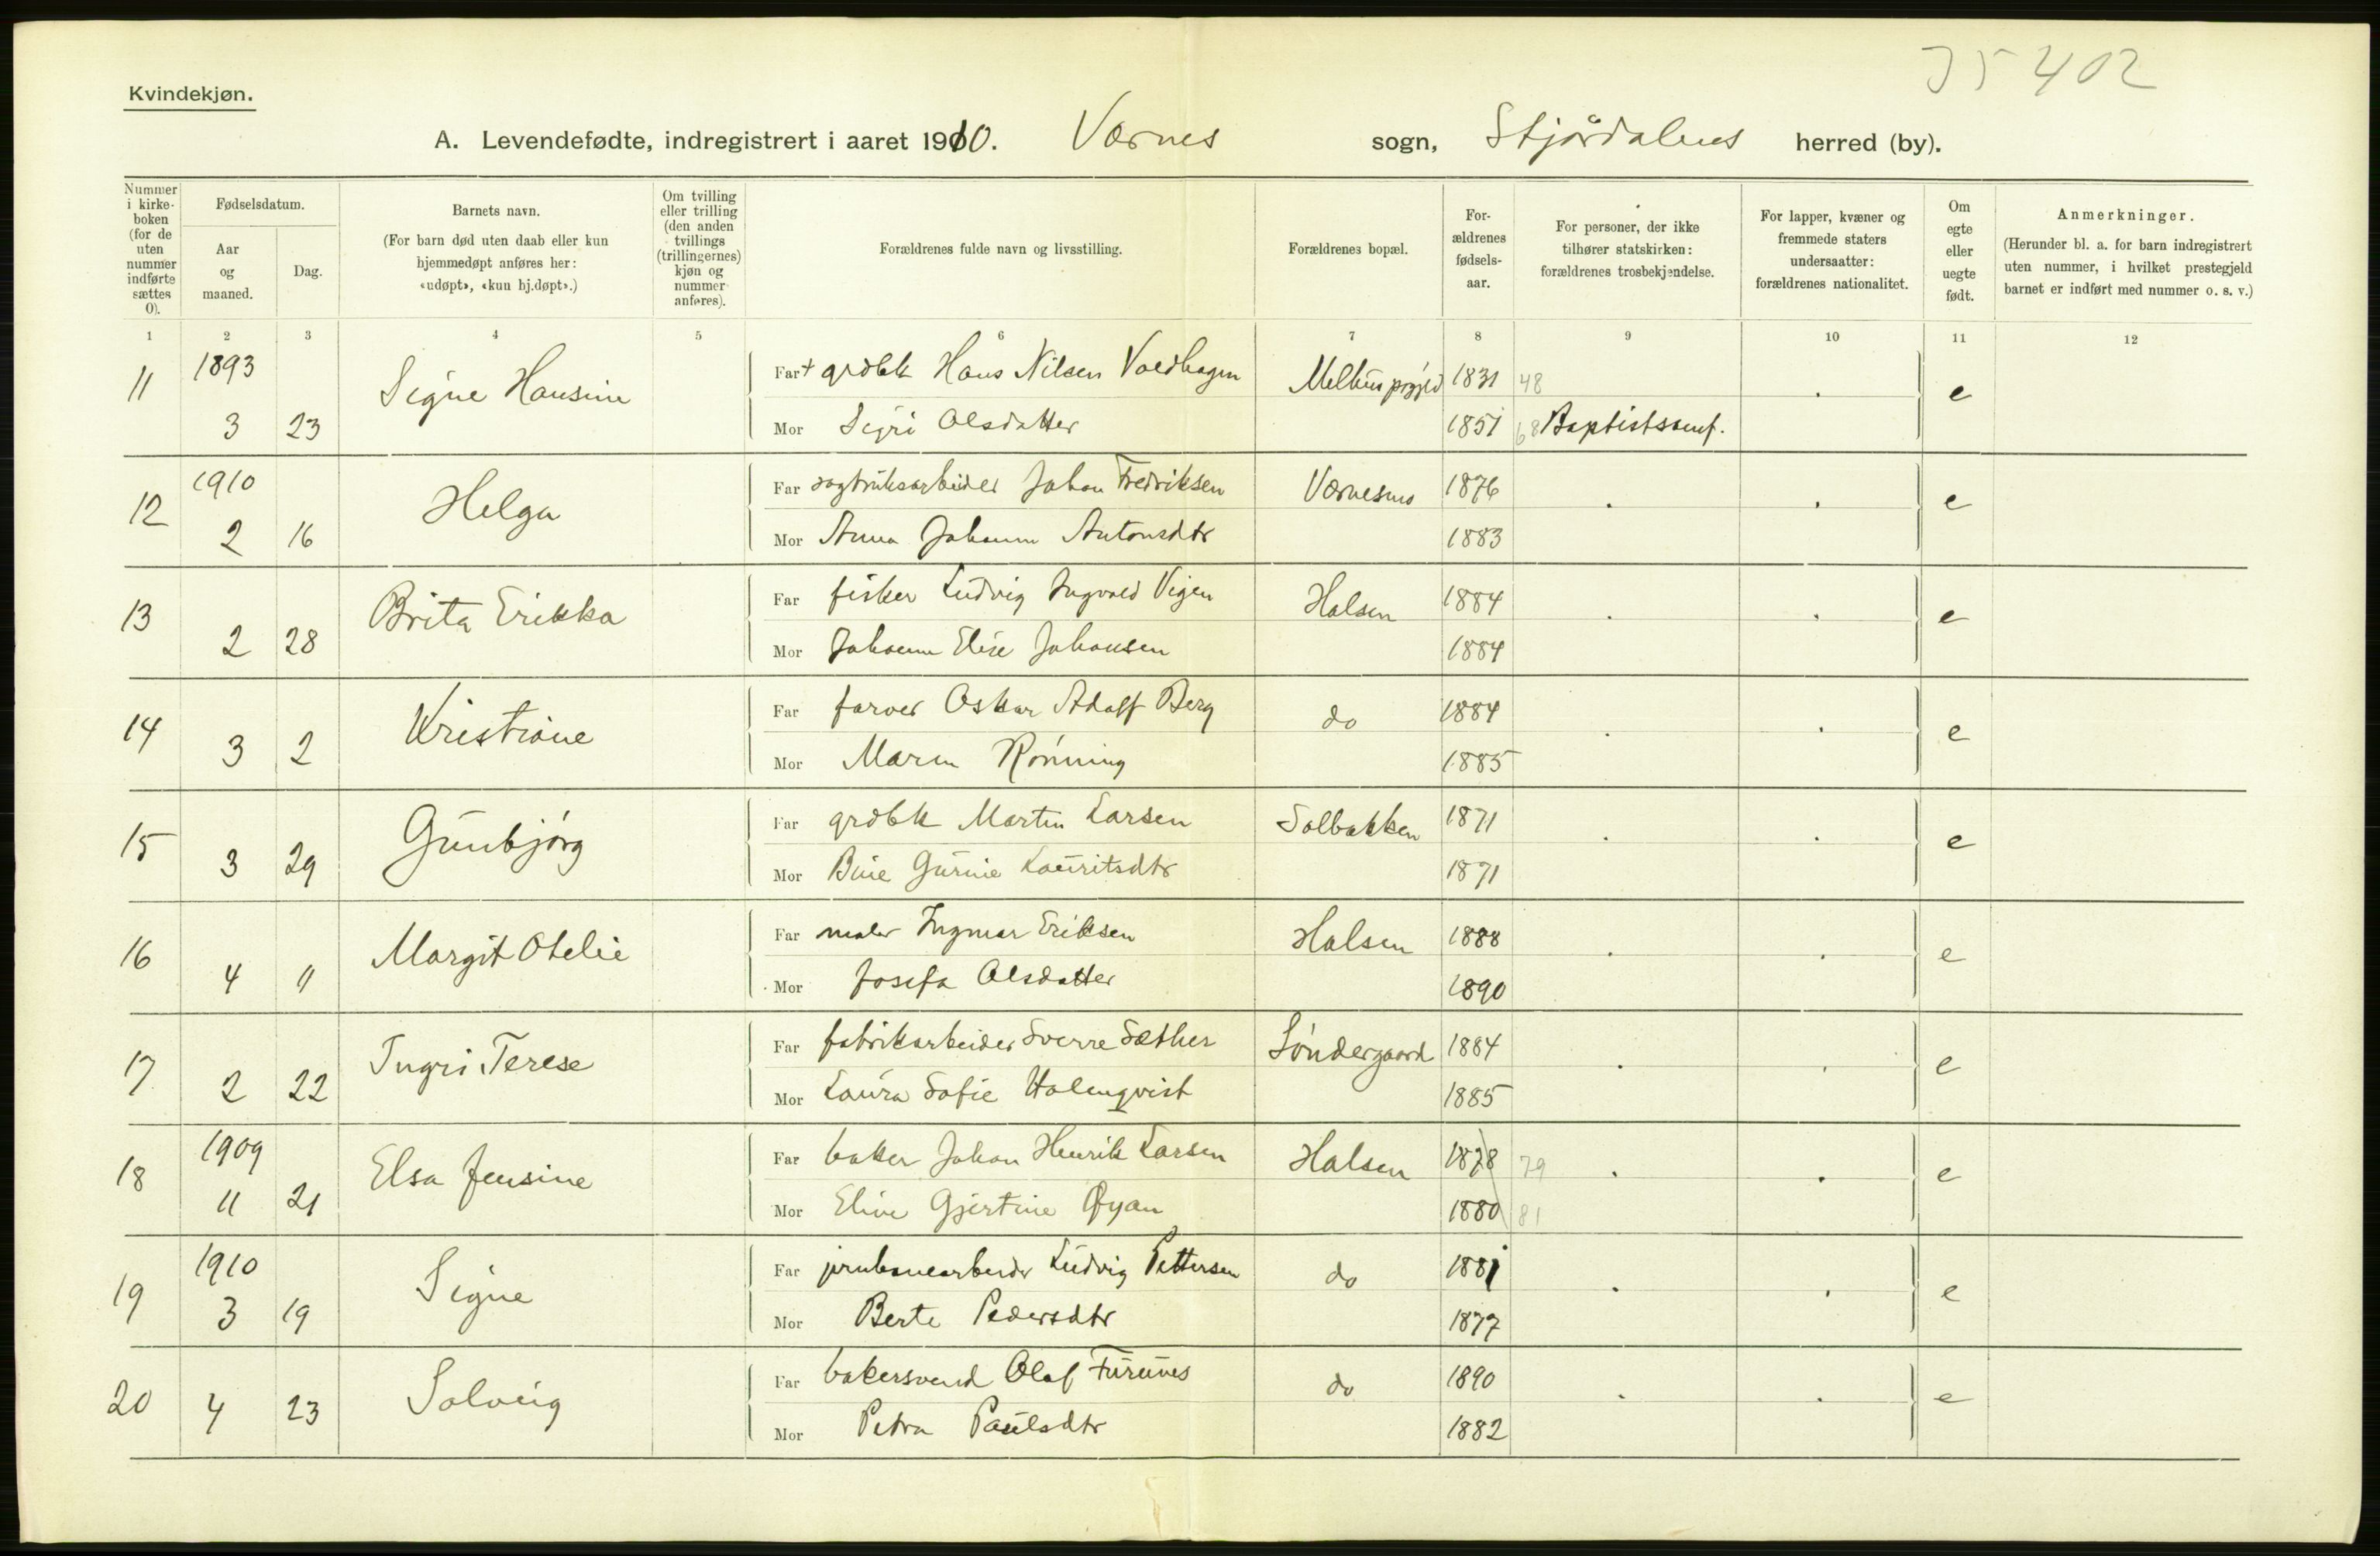 75 402
Kvindekjøn.
A. Levendefødte, indregistrert i aaret 1910. Værnes sogn, Stjørdalens herred (by).
Nummer i kirke-boken (for de uten nummer indførte sættes 0).
Fødselsdatum.
Aar og maaned.
Dag.
Barnets navn.
(For barn død uten daab eller kun hjemmedøpt anføres her: «udøpt», «kun hj.døpt».)
Om tvilling eller trilling (den anden tvillings (trillingernes) kjøn og nummer anføres).
Forældrenes fulde navn og livsstilling.
Forældrenes bopæl.
For-ældrenes fødsels-aar.
For personer, der ikke tilhører statskirken: forældrenes trosbekjendelse.
For lapper, kvæner og fremmede staters undersaatter: forældrenes nationalitet.
Om egte eller uegte født.
Anmerkninger.
(Herunder bl. a. for barn indregistrert uten nummer, i hvilket prestegjeld barnet er indført med nummer o. s. v.)
1 2 3 4 5 6 7 8 9 10 11 12
11 1893 Signe Hansine Far + grdbk Hans Nilsen Voldhagen Melhus prgjeld 1831 48 e
3 23 Mor Sigri Olsdatter 1851 68 Baptistsamf.
12 1910 Helga Far sagbruksarbeider Johan Fredriksen Værnesmo 1876 e
2 16 Mor Anna Johanna Antonsdtr 1883
13 Brita Erikka Far fisker Ludvig Ingvald Vigen Halsen 1884 e
2 28 Mor Johanna Elise Johansen 1884
14 Kristiane Far farver Oskar Adolf Berg do 1884 e
3 2 Mor Maren Rønning 1885
15 Gunbjørg Far grdbk Martin Larsen Solbakken 1871 e
3 29 Mor Bine Gurine Lauritsdtr 1871
16 Margit Otelie Far maler Ingmar Eriksen Halsen 1888 e
4 11 Mor Josefa Olsdatter 1890
17 Ingri Terese Far fabrikarbeider Sverre Sæther Søndergaard 1884 e
2 22 Mor Laura Sofie Holmqvist 1885
18 1909 Elsa Jensine Far baker Johan Henrik Larsen Halsen 1878 79 e
11 21 Mor Eline Gjertine Øyan 1880 81
19 1910 Signe Far jernbanearbeider Ludvig Pettersen do 1881 e
3 19 Mor Berte Pedersdtr 1877
20 Solveig Far bakersvend Olaf Furunes do 1890 e
4 23 Mor Petra Paulsdtr 1882